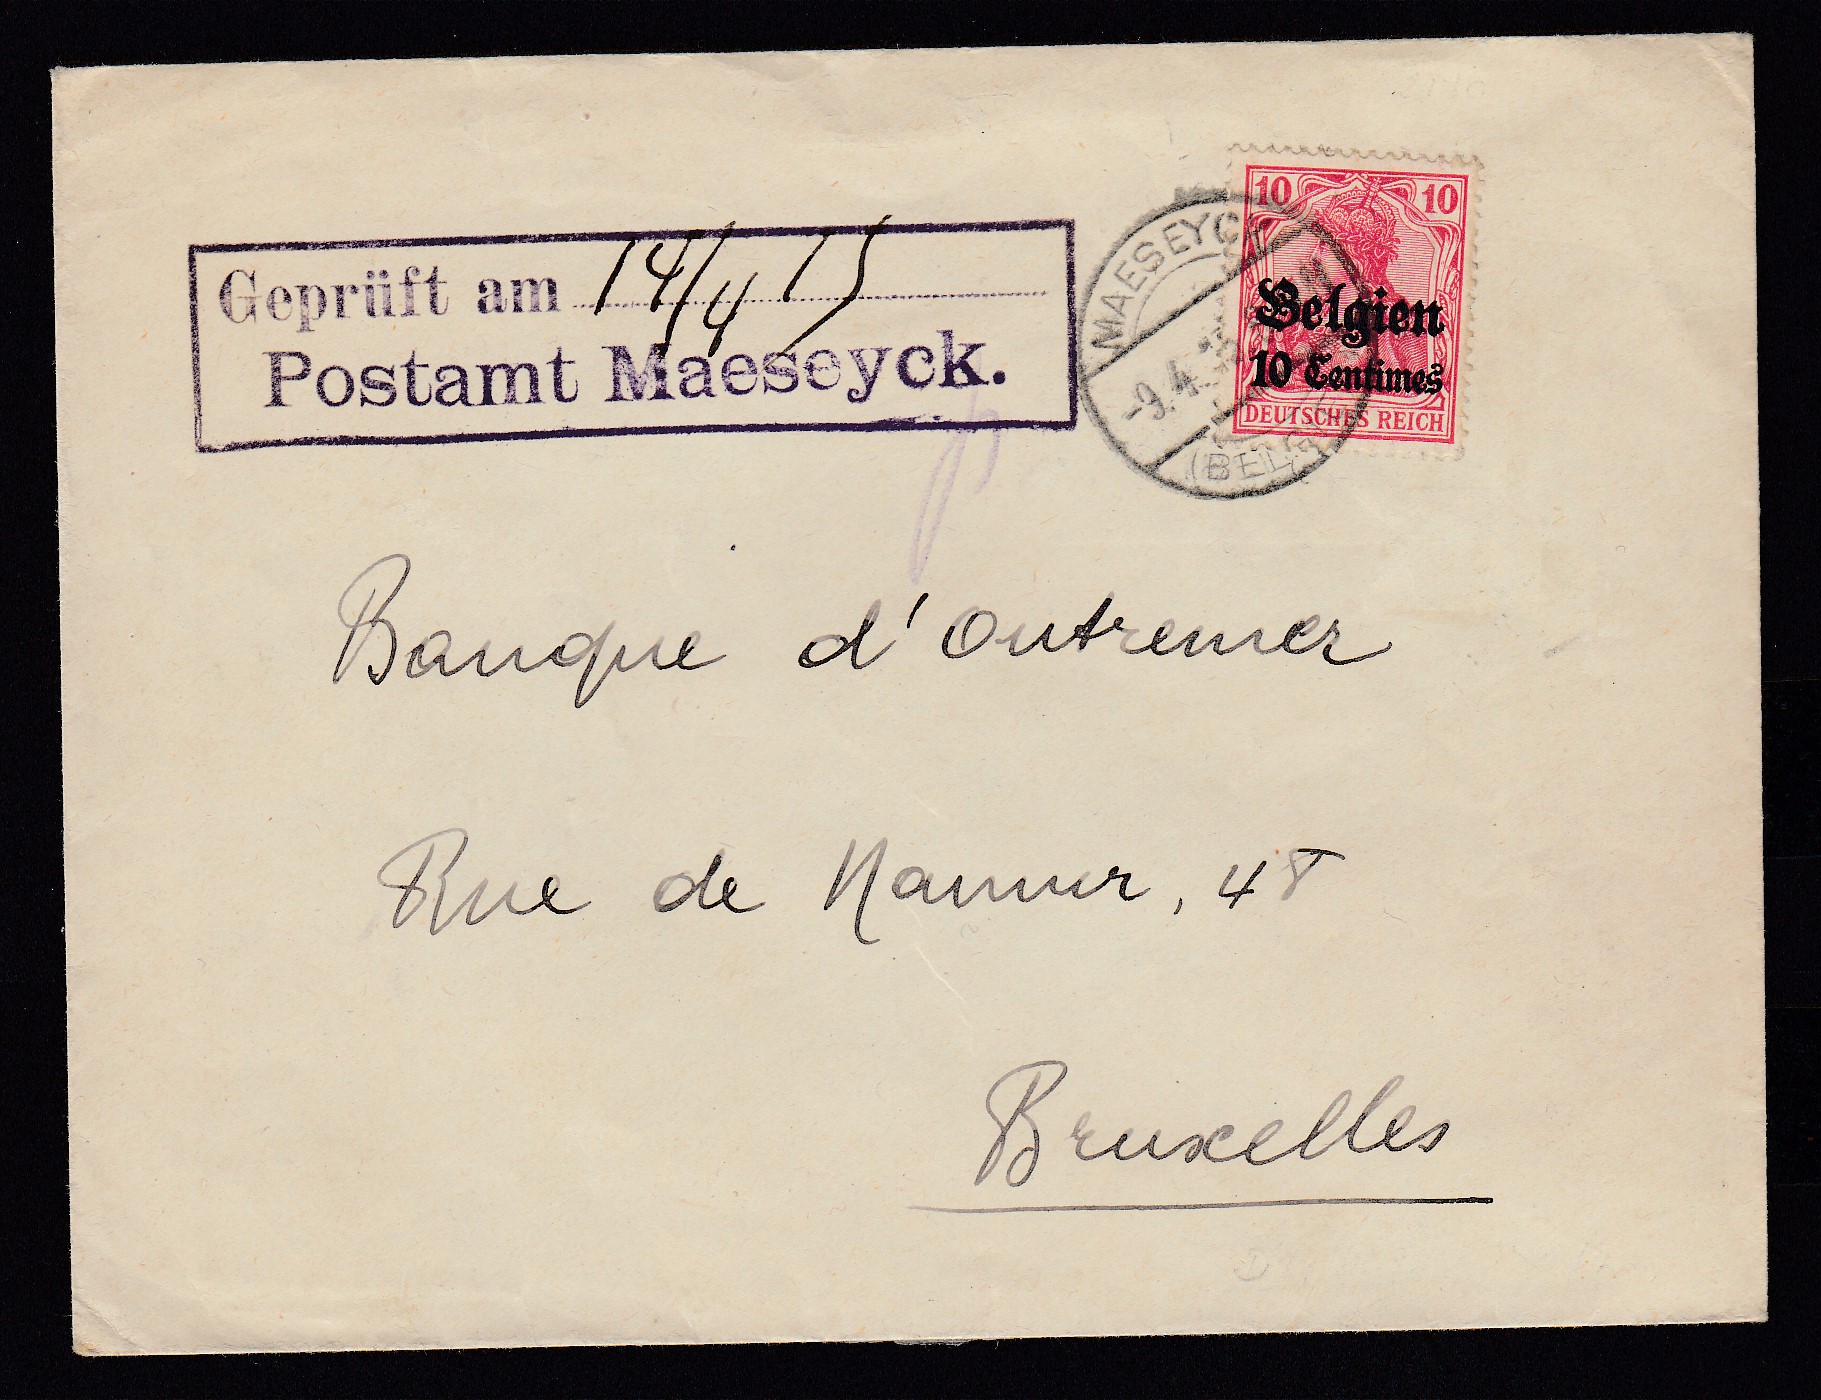 Geprüft am 14/4 15
Postamt Maeseyck.
MAESEYCK
-9.4.
(BELG
10 10
Belgien
10 Centimes
DEUTSCHES REICH
Banque d'Outremer
Rue de Namur, 48
Bruxelles